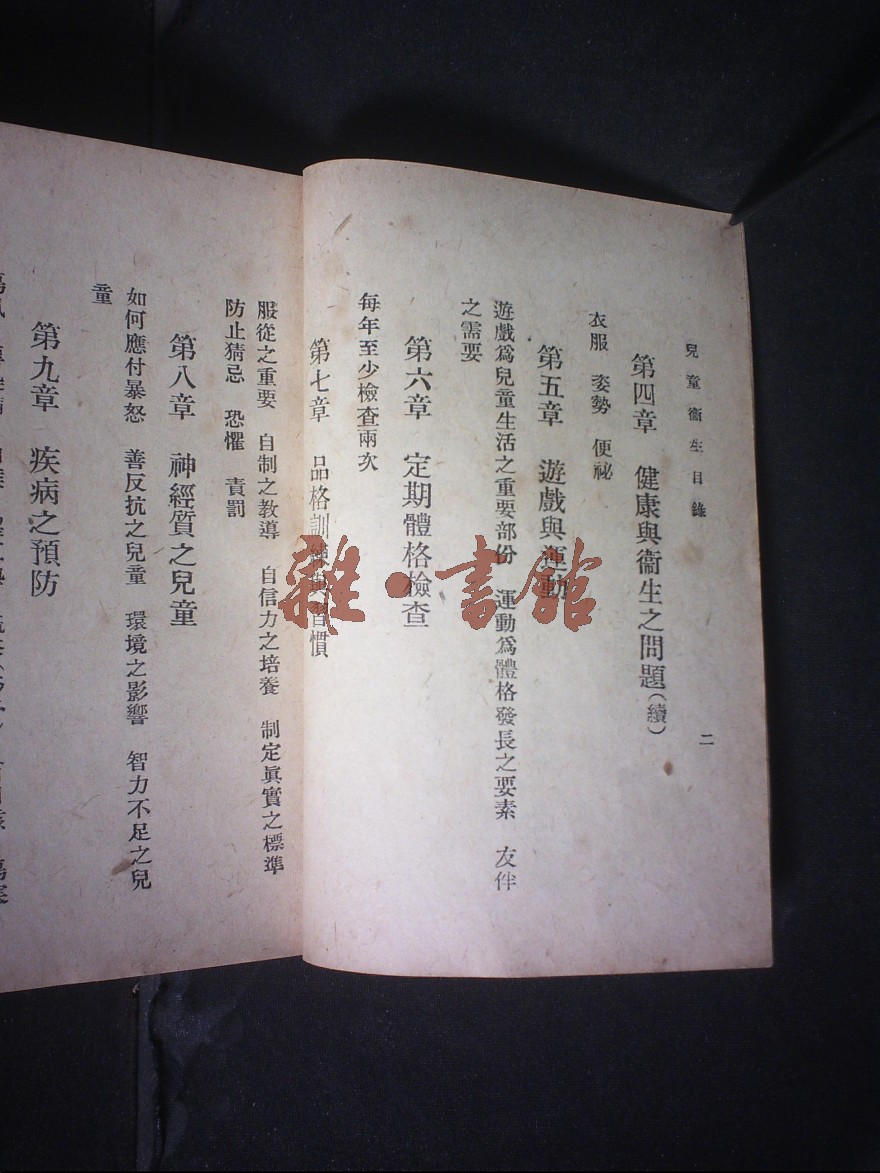 兒童衞生目錄
二
第四章 健康與衞生之問題(續)
衣服 姿勢 便祕
第五章 遊戲與運動
遊戲爲兒童生活之重要部份 運動爲體格發長之要素 友伴
之需要
第六章 定期體格檢查
每年至少檢查兩次
第七章 品格訓練與習慣
服從之重要 自制之教導 自信力之培養 制定眞實之標準
防止猜忌 恐懼 責罰
第八章 神經質之兒童
如何應付暴怒 善反抗之兒童 環境之影響 智力不足之兒
童
第九章 疾病之預防
雜·書館